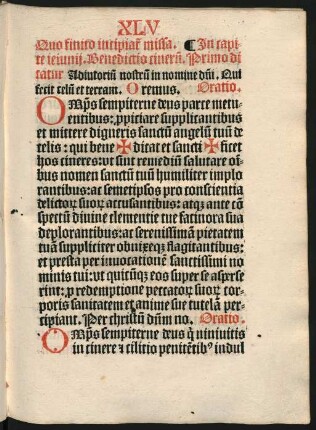 XLV
Quo finito incipiat͛ missa. ¶ In capi
te ieiunij. Benedictio cinerũ. Primo di
catur Adiutoriũ nostrũ in nomine dñi. Qui
fecit celũ et terram. Oremus. Oratio.
OMp̃s sempiterne deus parce metu
entibus: ꝓpiciare supplicantibus
et mittere digneris sanctũ angelũ tuũ de
celis: qui bene ✠ dicat et sancti ✠ ficet
hos cineres: vt sint remediũ salutare oĩ
bus nomen sanctũ tuũ humiliter implo
rantibus: ac semetipsos pro conscientia
delictoꝝ suoꝝ accusantibus: atqꝫ ante cõ
spectũ diuine clementie tue facinora sua
deplorantibus: ac serenissimã pietatem
tuã suppliciter obnixeqꝫ flagitantibus:
et presta per inuocationẽ sanctissimi no
minis tui: vt quicũqꝫ eos super se asperse
rint: ꝓ redemptione peccatoꝝ suoꝝ cor
poris sanitatem et anime sue tutelã per
cipiant. Per christũ dñm no. Oratio.
OMp̃s sempiterne deus q̃ niniuitis
in cinere ⁊ cilicio penitẽtibꝰ indul